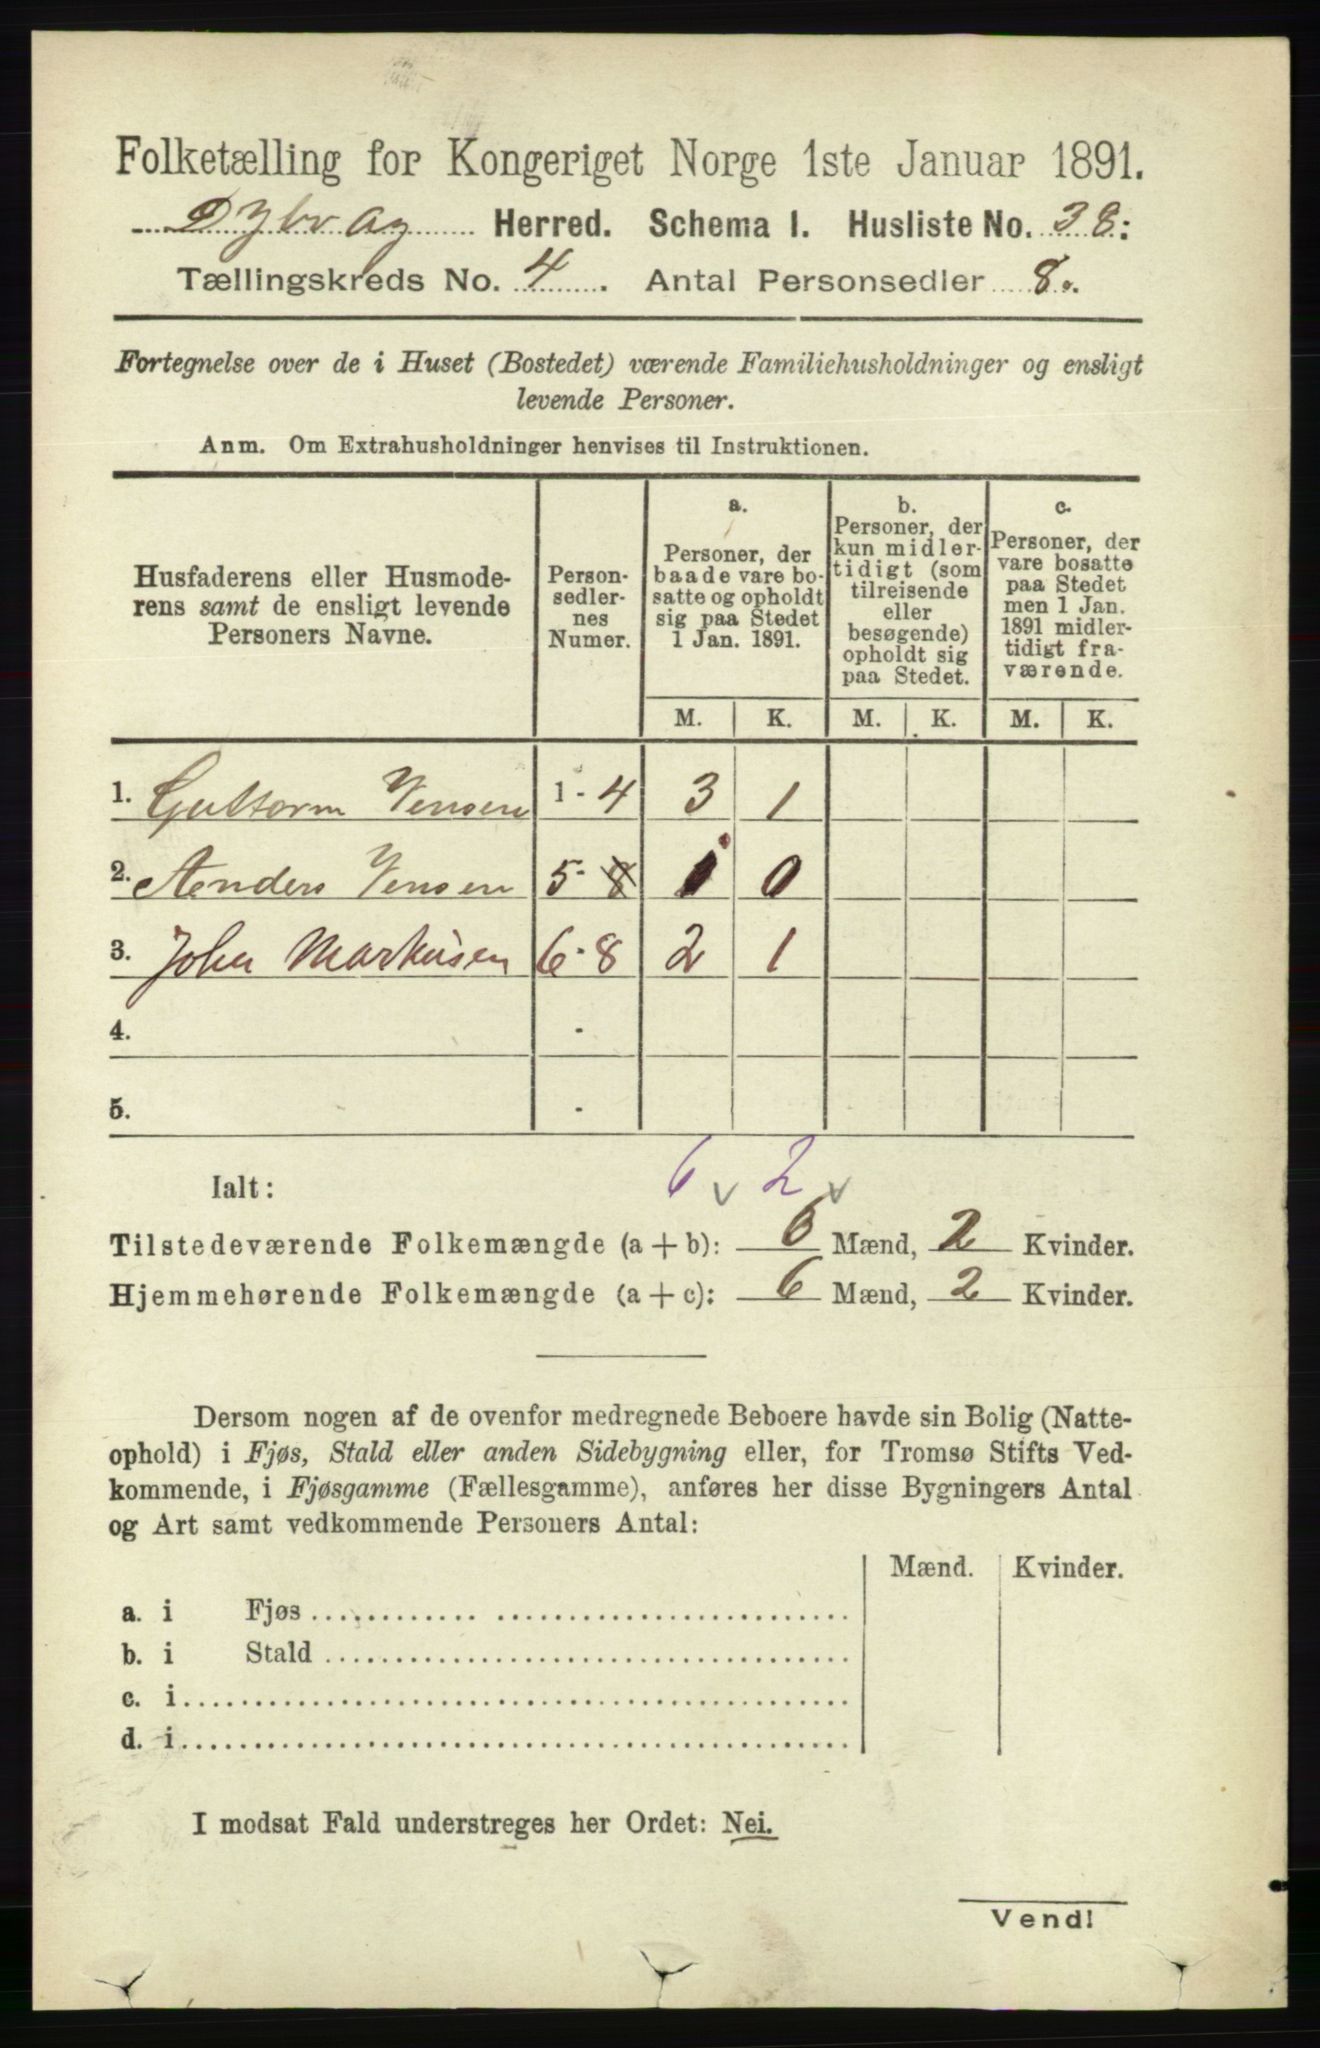 Folketælling for Kongeriget Norge 1ste Januar 1891.
Dybvag Herred. Schema I. Husliste No. 38:
Tællingskreds No. 4. Antal Personsedler 8.
Fortegnelse over de i Huset (Bostedet) værende Familiehusholdninger og ensligt
levende Personer.
Anm. Om Extrahusholdninger henvises til Instruktionen.
Husfaderens eller Husmode-
rens samt de ensligt levende
Personers Navne.
Person-
sedler-
nes
Numer.
a.
Personer, der
baade vare bo-
satte og opholdt
sig paa Stedet
1 Jan. 1891.
b.
Personer, der
kun midler-
tidigt (som
tilreisende
eller
besøgende)
opholdt sig
paa Stedet.
c.
Personer, der
vare bosatte
paa Stedet
men 1 Jan.
1891 midler-
tidigt fra-
værende.
M. K. M. K. M. K.
1. Guttorm Jensen 1 - 4 3 1
2. Anders Jensen 5 - 8 1 0
3. John Markusen 6 - 8 2 1
4. -
5. -
6 v 2 v
Ialt:
Tilstedeværende Folkemængde (a + b): 6 Mænd, 2 Kvinder.
Hjemmehørende Folkemængde (a + c): 6 Mænd, 2 Kvinder.
Dersom nogen af de ovenfor medregnede Beboere havde sin Bolig (Natte-
ophold) i Fjøs, Stald eller anden Sidebygning eller, for Tromsø Stifts Ved-
kommende, i Fjøsgamme (Fællesgamme), anføres her disse Bygningers Antal
og Art samt vedkommende Personers Antal:
Mænd. Kvinder.
a. i Fjøs
b. i Stald
c. i
d. i
I modsat Fald understreges her Ordet: Nei.
Vend!